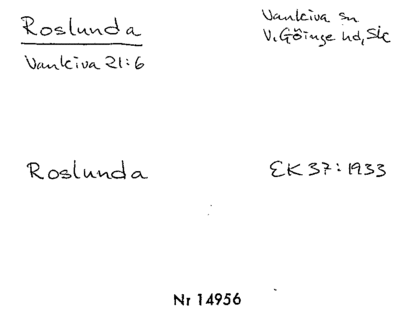 Roslunda
Vankiva 21:6
Vankiva sn
V. Göinge hd, Sk
Roslunda
EK 37: 1933
Nr 14956